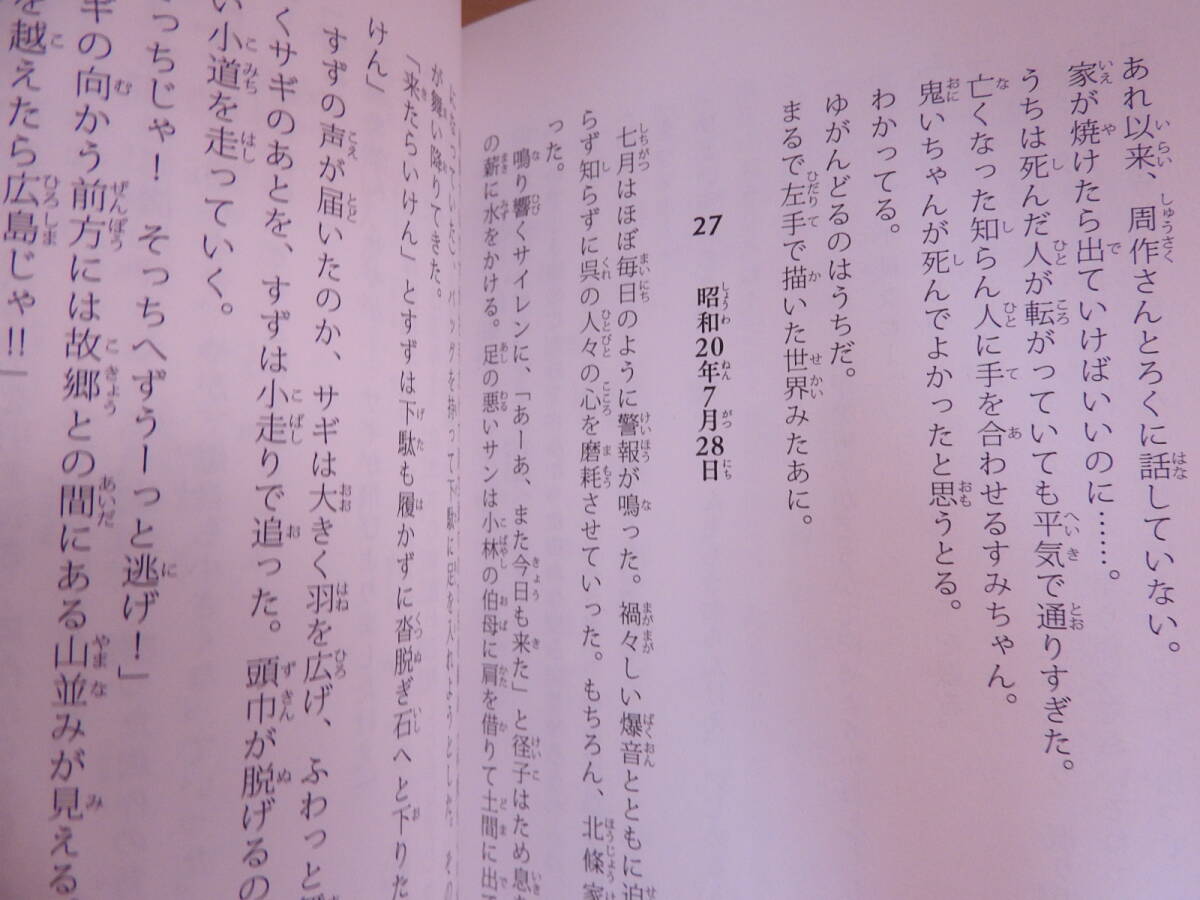 あれ以来、周作さんとろくに話していない。
家が焼けたら出ていけばいいのに……。
うちは死んだ人が転がっていても平気で通りすぎた。
亡くなった知らん人に手を合わせるすみちゃん。
鬼いちゃんが死んでよかったと思うとる。
わかってる。
ゆがんどるのはうちだ。
まるで左手で描いた世界みたあに。
27 昭和20年7月28日
七月はほぼ毎日のように警報が鳴った。禍々しい爆音とともに迫
らず知らずに呉の人々の心を磨耗させていった。もちろん、北條家
った。
鳴り響くサイレンに、「あーあ、また今日も来た」と径子はため息
の薪に水をかける。足の悪いサンは小林の伯母に肩を借りて土間に出
を持って下駄に足を入れようとした。その
が舞い降りてきた。
「来たらいけん」とすずは下駄も履かずに沓脱ぎ石へと下りた
けん」
すずの声が届いたのか、サギは大きく羽を広げ、ふわっと
くサギのあとを、すずは小走りで追った。頭巾が脱げるの
い小道を走っていく。
っちじゃ！　そっちへずうーっと逃げ！」
ギの向かう前方には故郷との間にある山並みが見える
を越えたら広島じゃ!!」